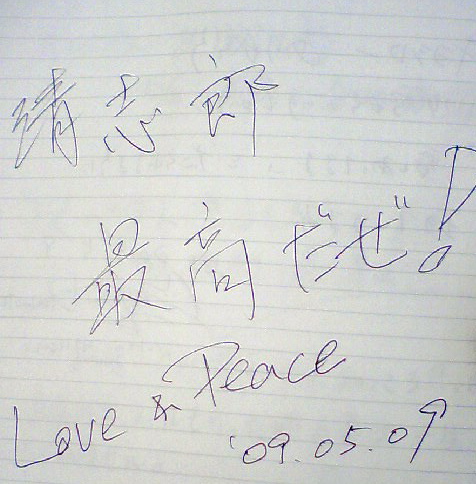 清志郎
最高だぜ!
Love & Peace
'09.05.09